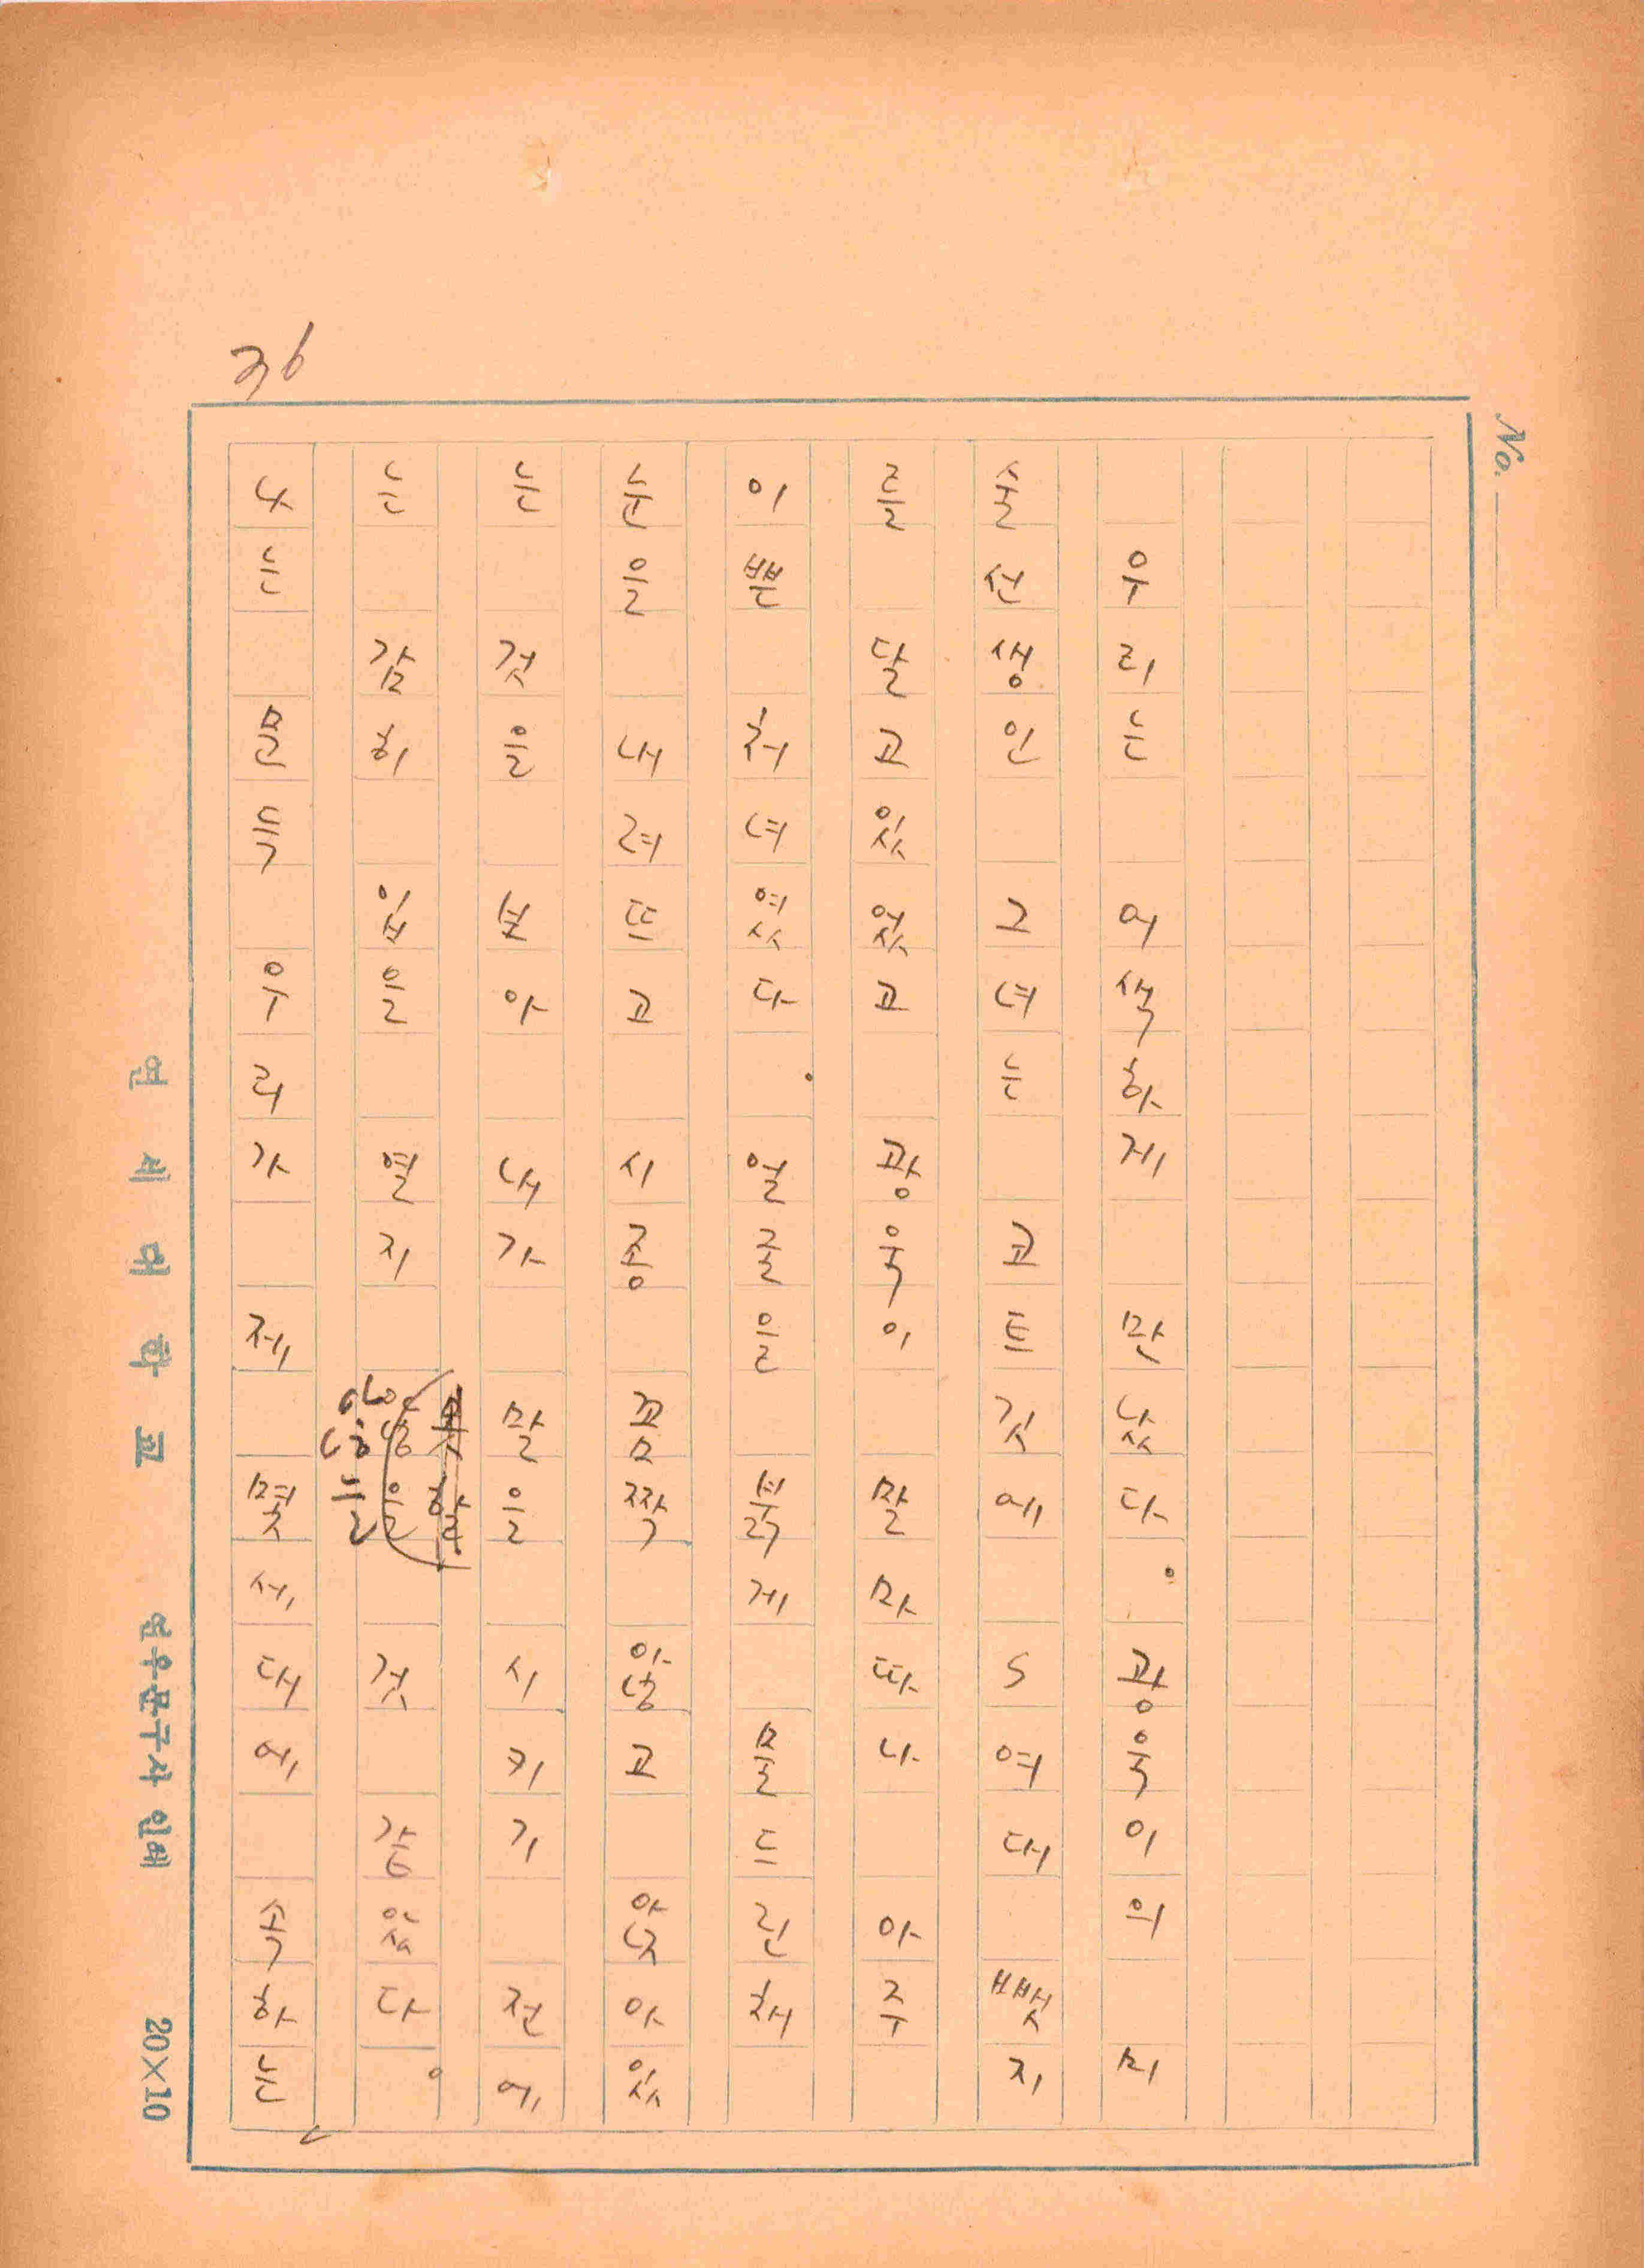 우리는 어색하게 만났다. 광욱이의 미
술선생인 그녀는 코트깃에 S여대 뺏지
를 달고있었고 광욱이 말마따나 아주
이쁜 처녀였다. 얼굴을 붉게 물드린채
눈을 내려뜨고 시종 꼼짝 않고 앉아있
는 것을 보아 내가 말을 시키기 전에
는 감히 입을 열지 않을 것 같았다.
나는 문득 우리가 제 몇세대에 속하는
36
No.
연세대학교 연우문구사 인쇄 20×10